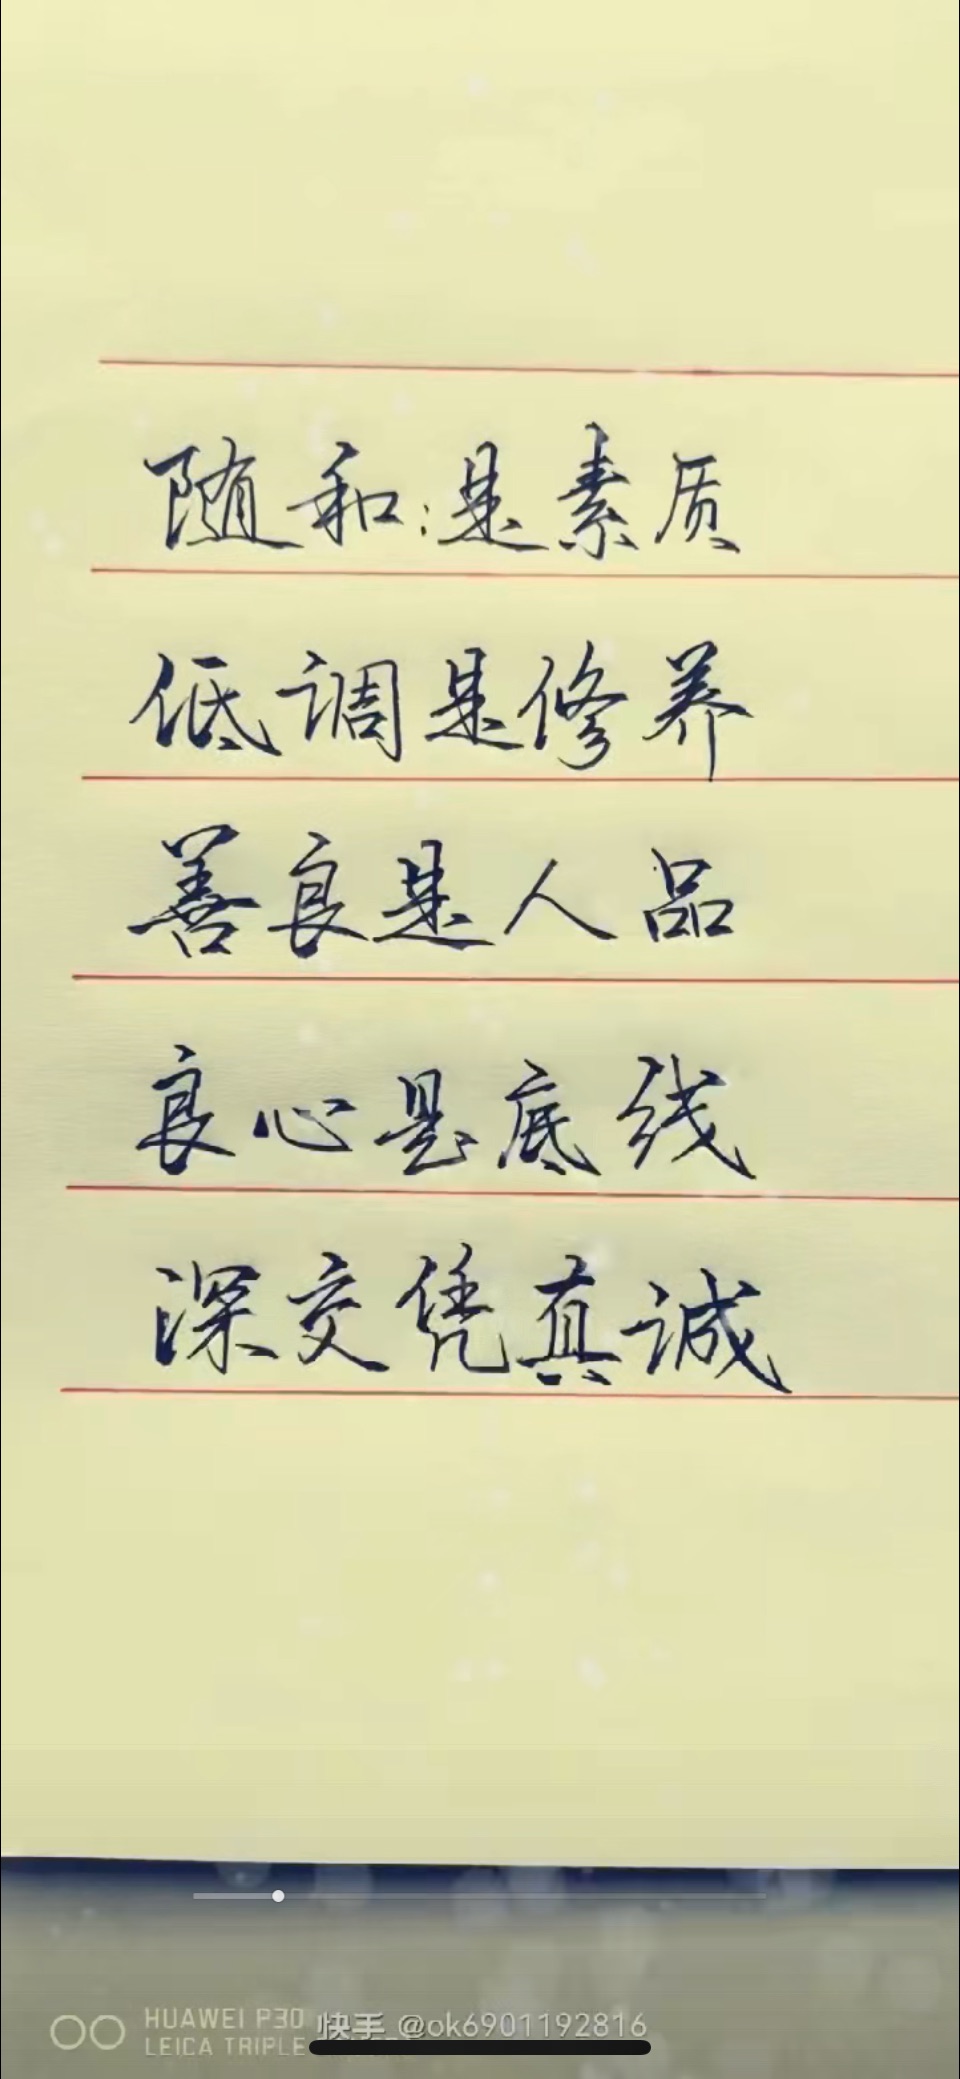 随和:是素质
低调是修养
善良是人品
良心是底线
深交凭真诚
HUAWEI P30
LEICA TRIPLE
快手 @ok6901192816